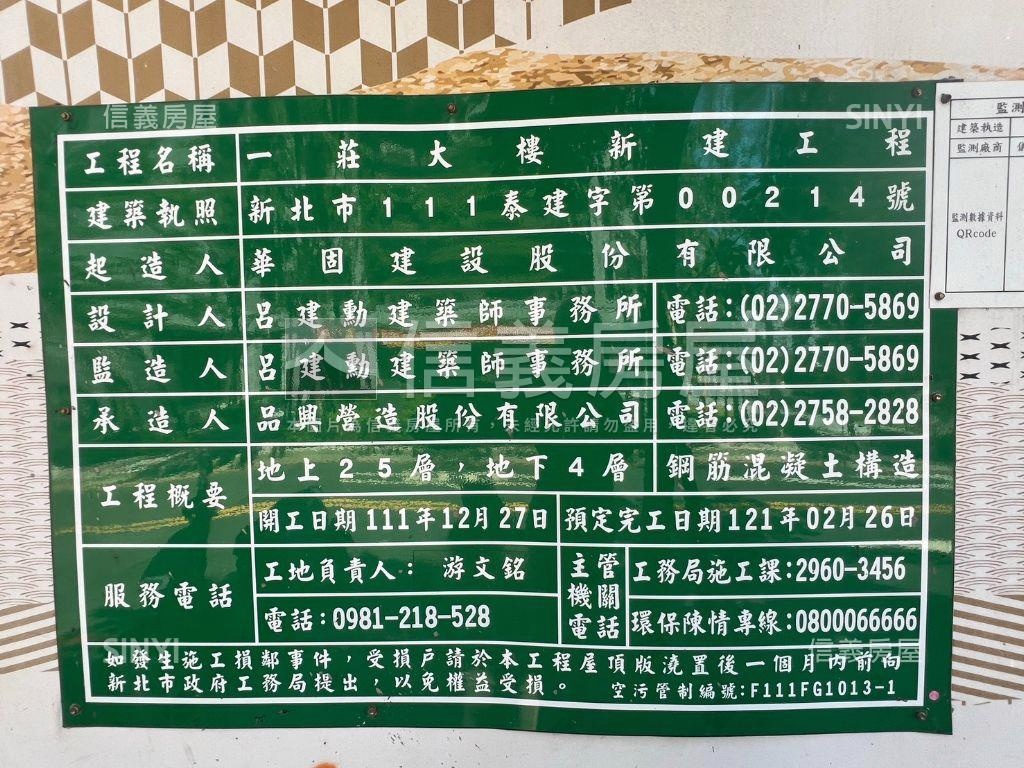 信義房屋
SINYI
工程名稱 一莊大樓新建工程
建築執照 新北市111泰建字第00214號
起造人 華固建設股份有限公司
設計人 呂建勳建築師事務所 電話:(02)2770-5869
監造人 呂建勳建築師事務所 電話:(02)2770-5869
信義房屋
承造人 品興營造股份有限公司 電話:(02)2758-2828
工程概要 地上25層，地下4層 鋼筋混凝土構造
開工日期111年12月27日 預定完工日期121年02月26日
服務電話 工地負責人： 游文銘
電話:0981-218-528
主管機關電話 工務局施工課:2960-3456
環保陳情專線:0800066666
SINYI
信義房屋
如發生施工損鄰事件，受損戶請於本工程屋頂版澆置後一個月內前向
新北市政府工務局提出，以免權益受損。 空污管制編號:F111FG1013-1
監測
建築執造
監測廠商
監測數據資料
QRcode